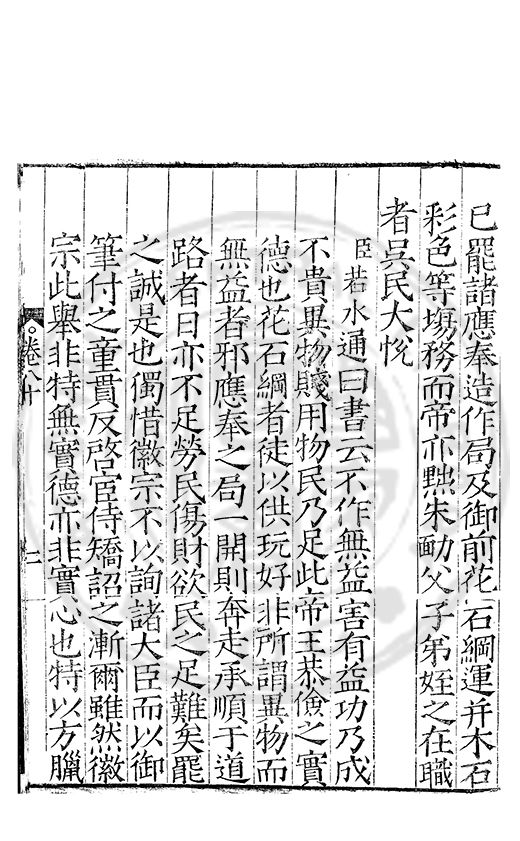 已罷諸應奉造作局及御前花石綱運并木石
彩色等塲務而帝亦黜朱勔父子弟姪之在職
者吳民大悅
臣若水通曰書云不作無益害有益功乃成
不貴異物賤用物民乃足此帝王恭儉之實
德也花石綱者徒以供玩好非所謂異物而
無益者邪應奉之局一開則奔走承順于道
路者日亦不足勞民傷財欲民之足難矣罷
之誠是也獨惜徽宗不以詢諸大臣而以御
筆付之童貫反啓宦侍矯詔之漸爾雖然徽
宗此舉非特無實德亦非實心也特以方臘
卷八十
二